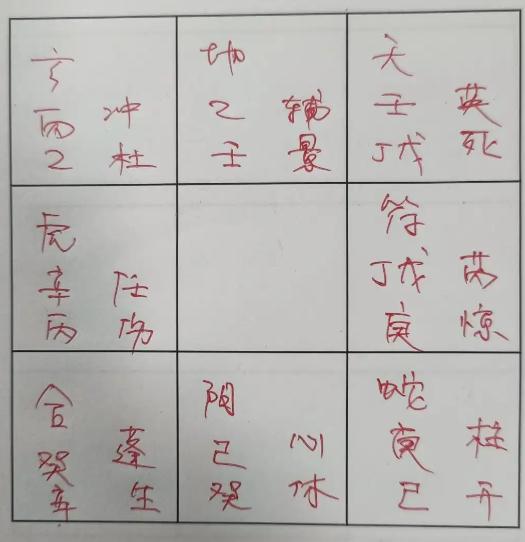 玄
丙 冲
乙 杜
地
乙 辅
壬 景
天
壬 英
丁戊 死
虎
辛 任
丙 伤
符
丁戊 芮
庚 惊
合
癸 蓬
辛 生
阴
己 心
癸 休
蛇
庚 柱
己 开